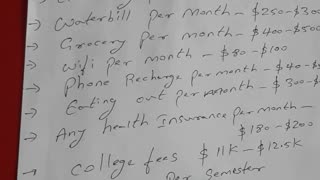 → Waterbill per month - $250-$300
→ Grocery per month - $400-$500
→ Wifi per month - $80-$100
→ Phone Recharge per month - $40-
→ Eating out per month - $300-
→ Any health Insurance per month -
$180-$200
→ College fees $11K-$12.5K
Per Semester